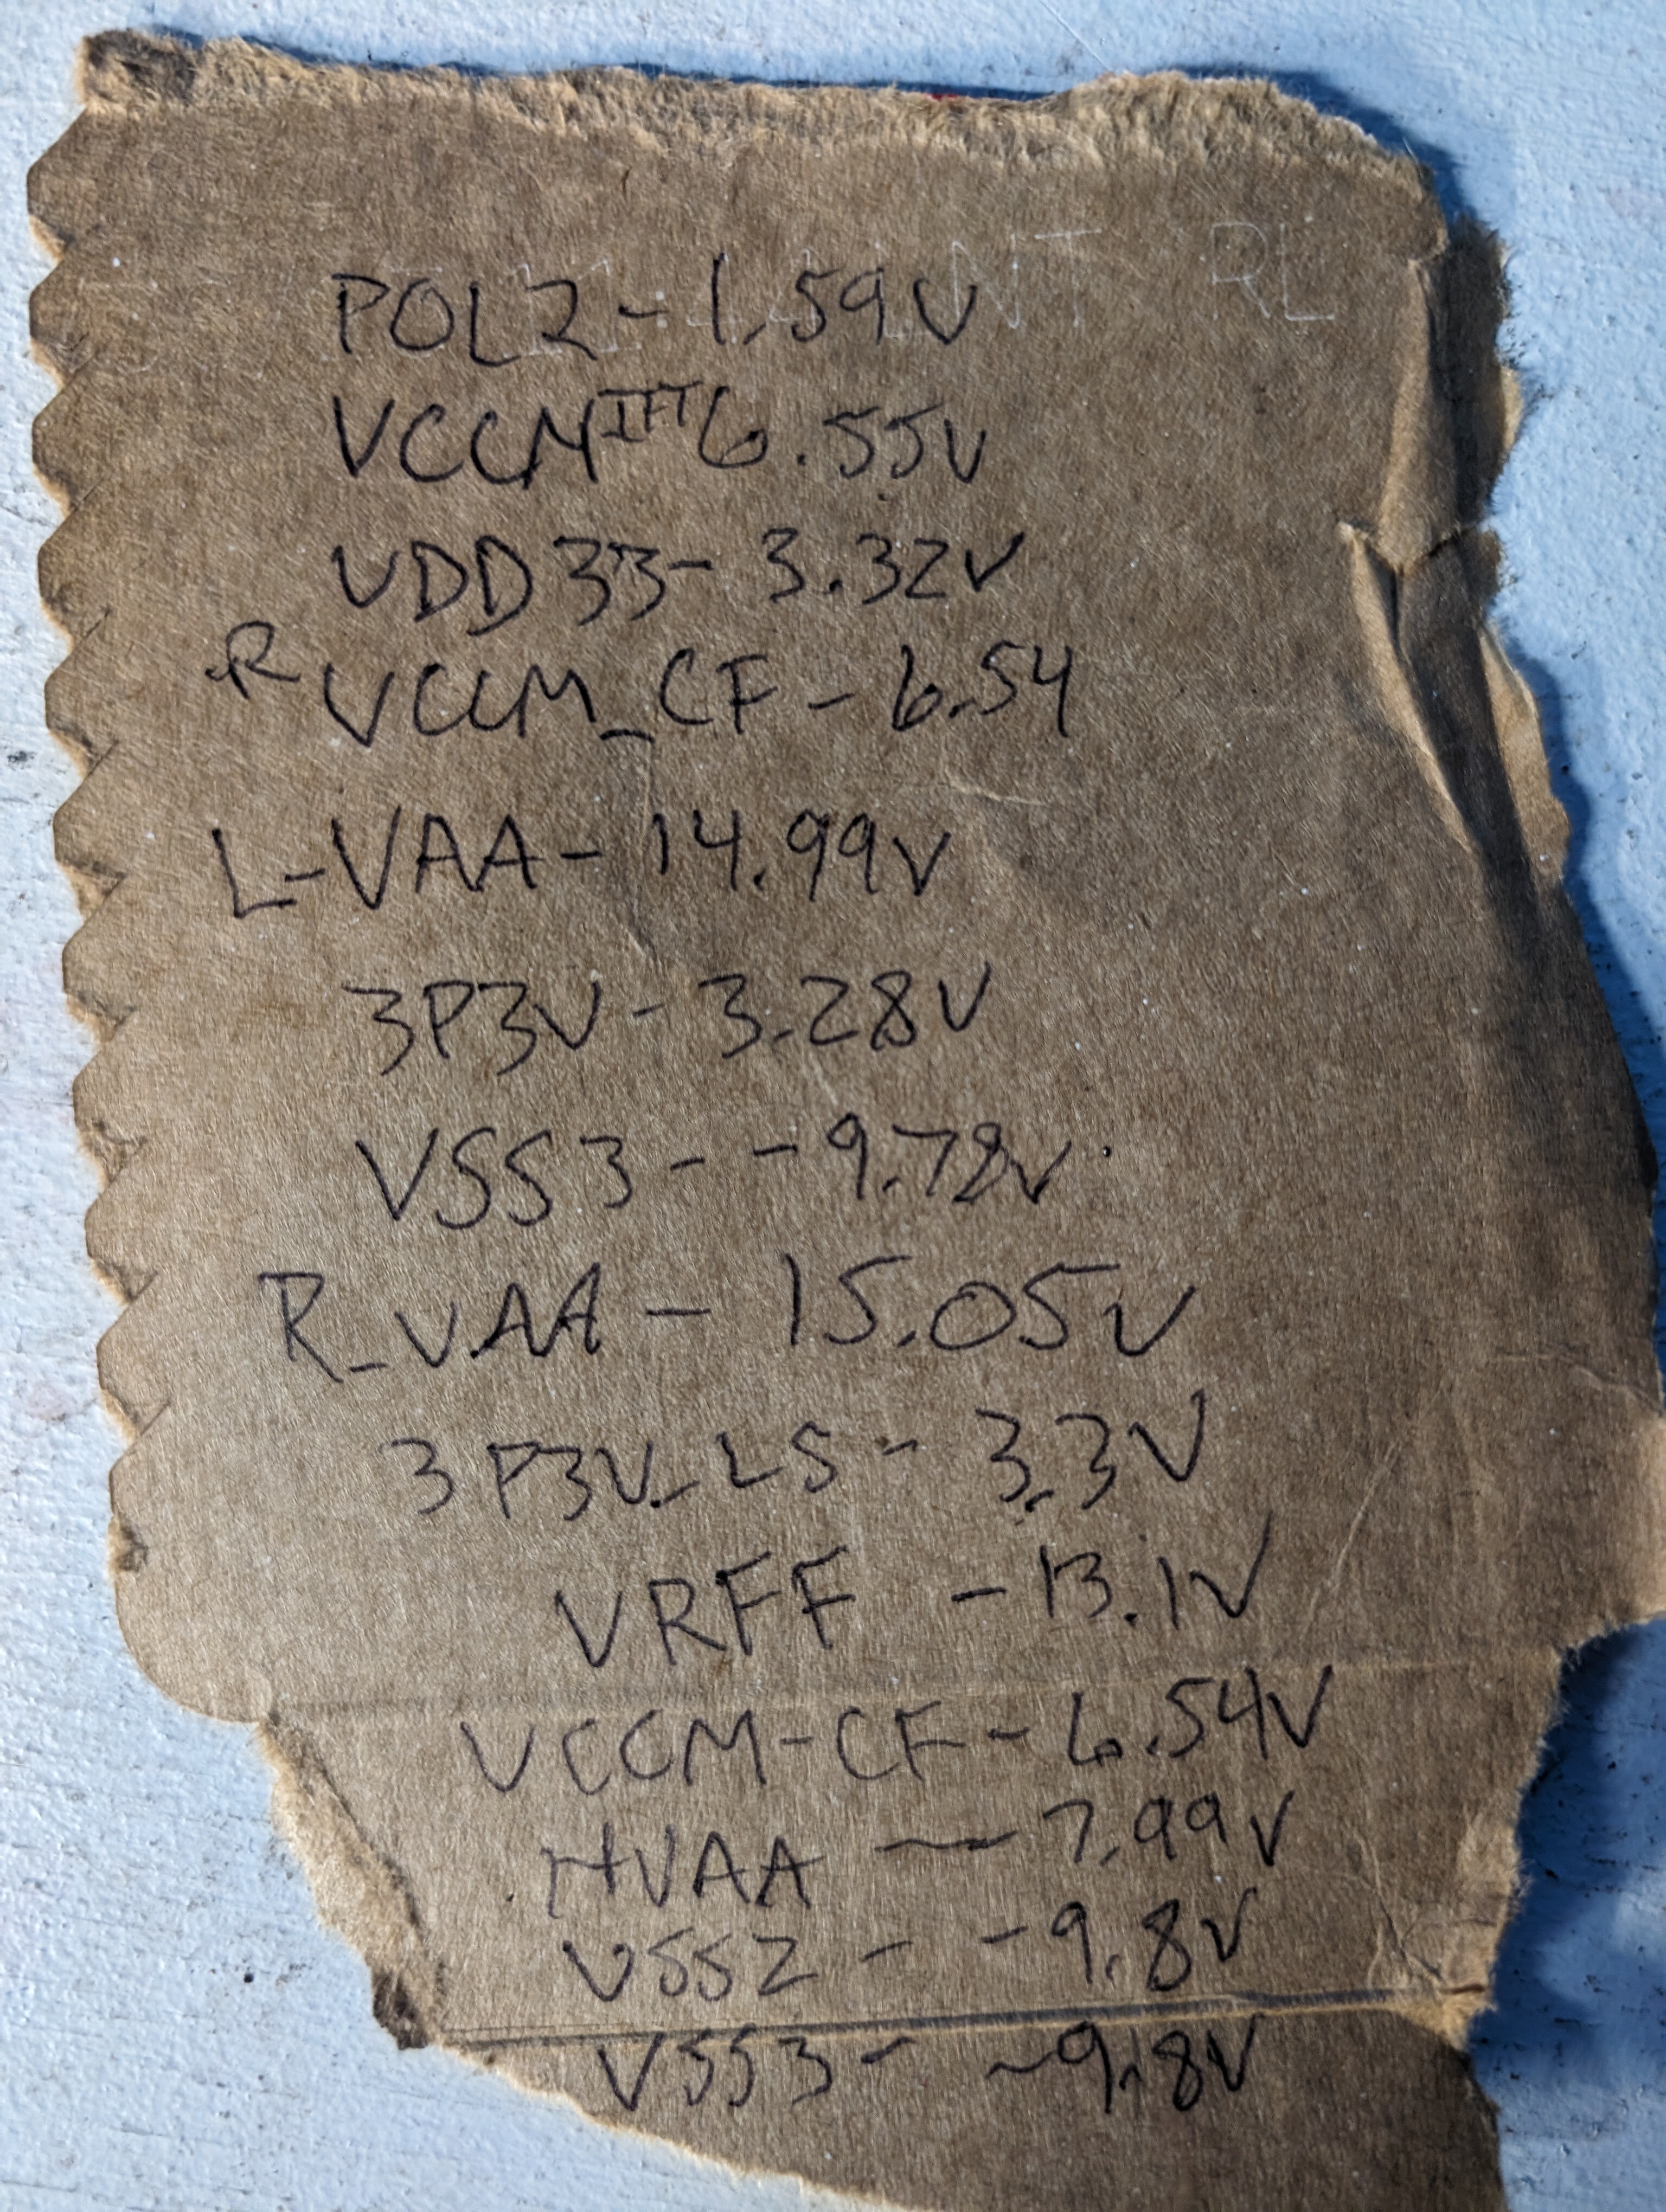 POL2 - 1.59V
VCCM IFT 6.55V
VDD33 - 3.32V
R VCCM_CF - 6.54
L-VAA - 14.99V
3P3V - 3.28V
VSS3 - -9.78V
R_VAA - 15.05V
3P3V_LS - 3.3V
VRFF - 13.1V
VCCM-CF - 6.54V
HVAA - 7.99V
VSS2 - -9.8V
VSS3 - -9.8V